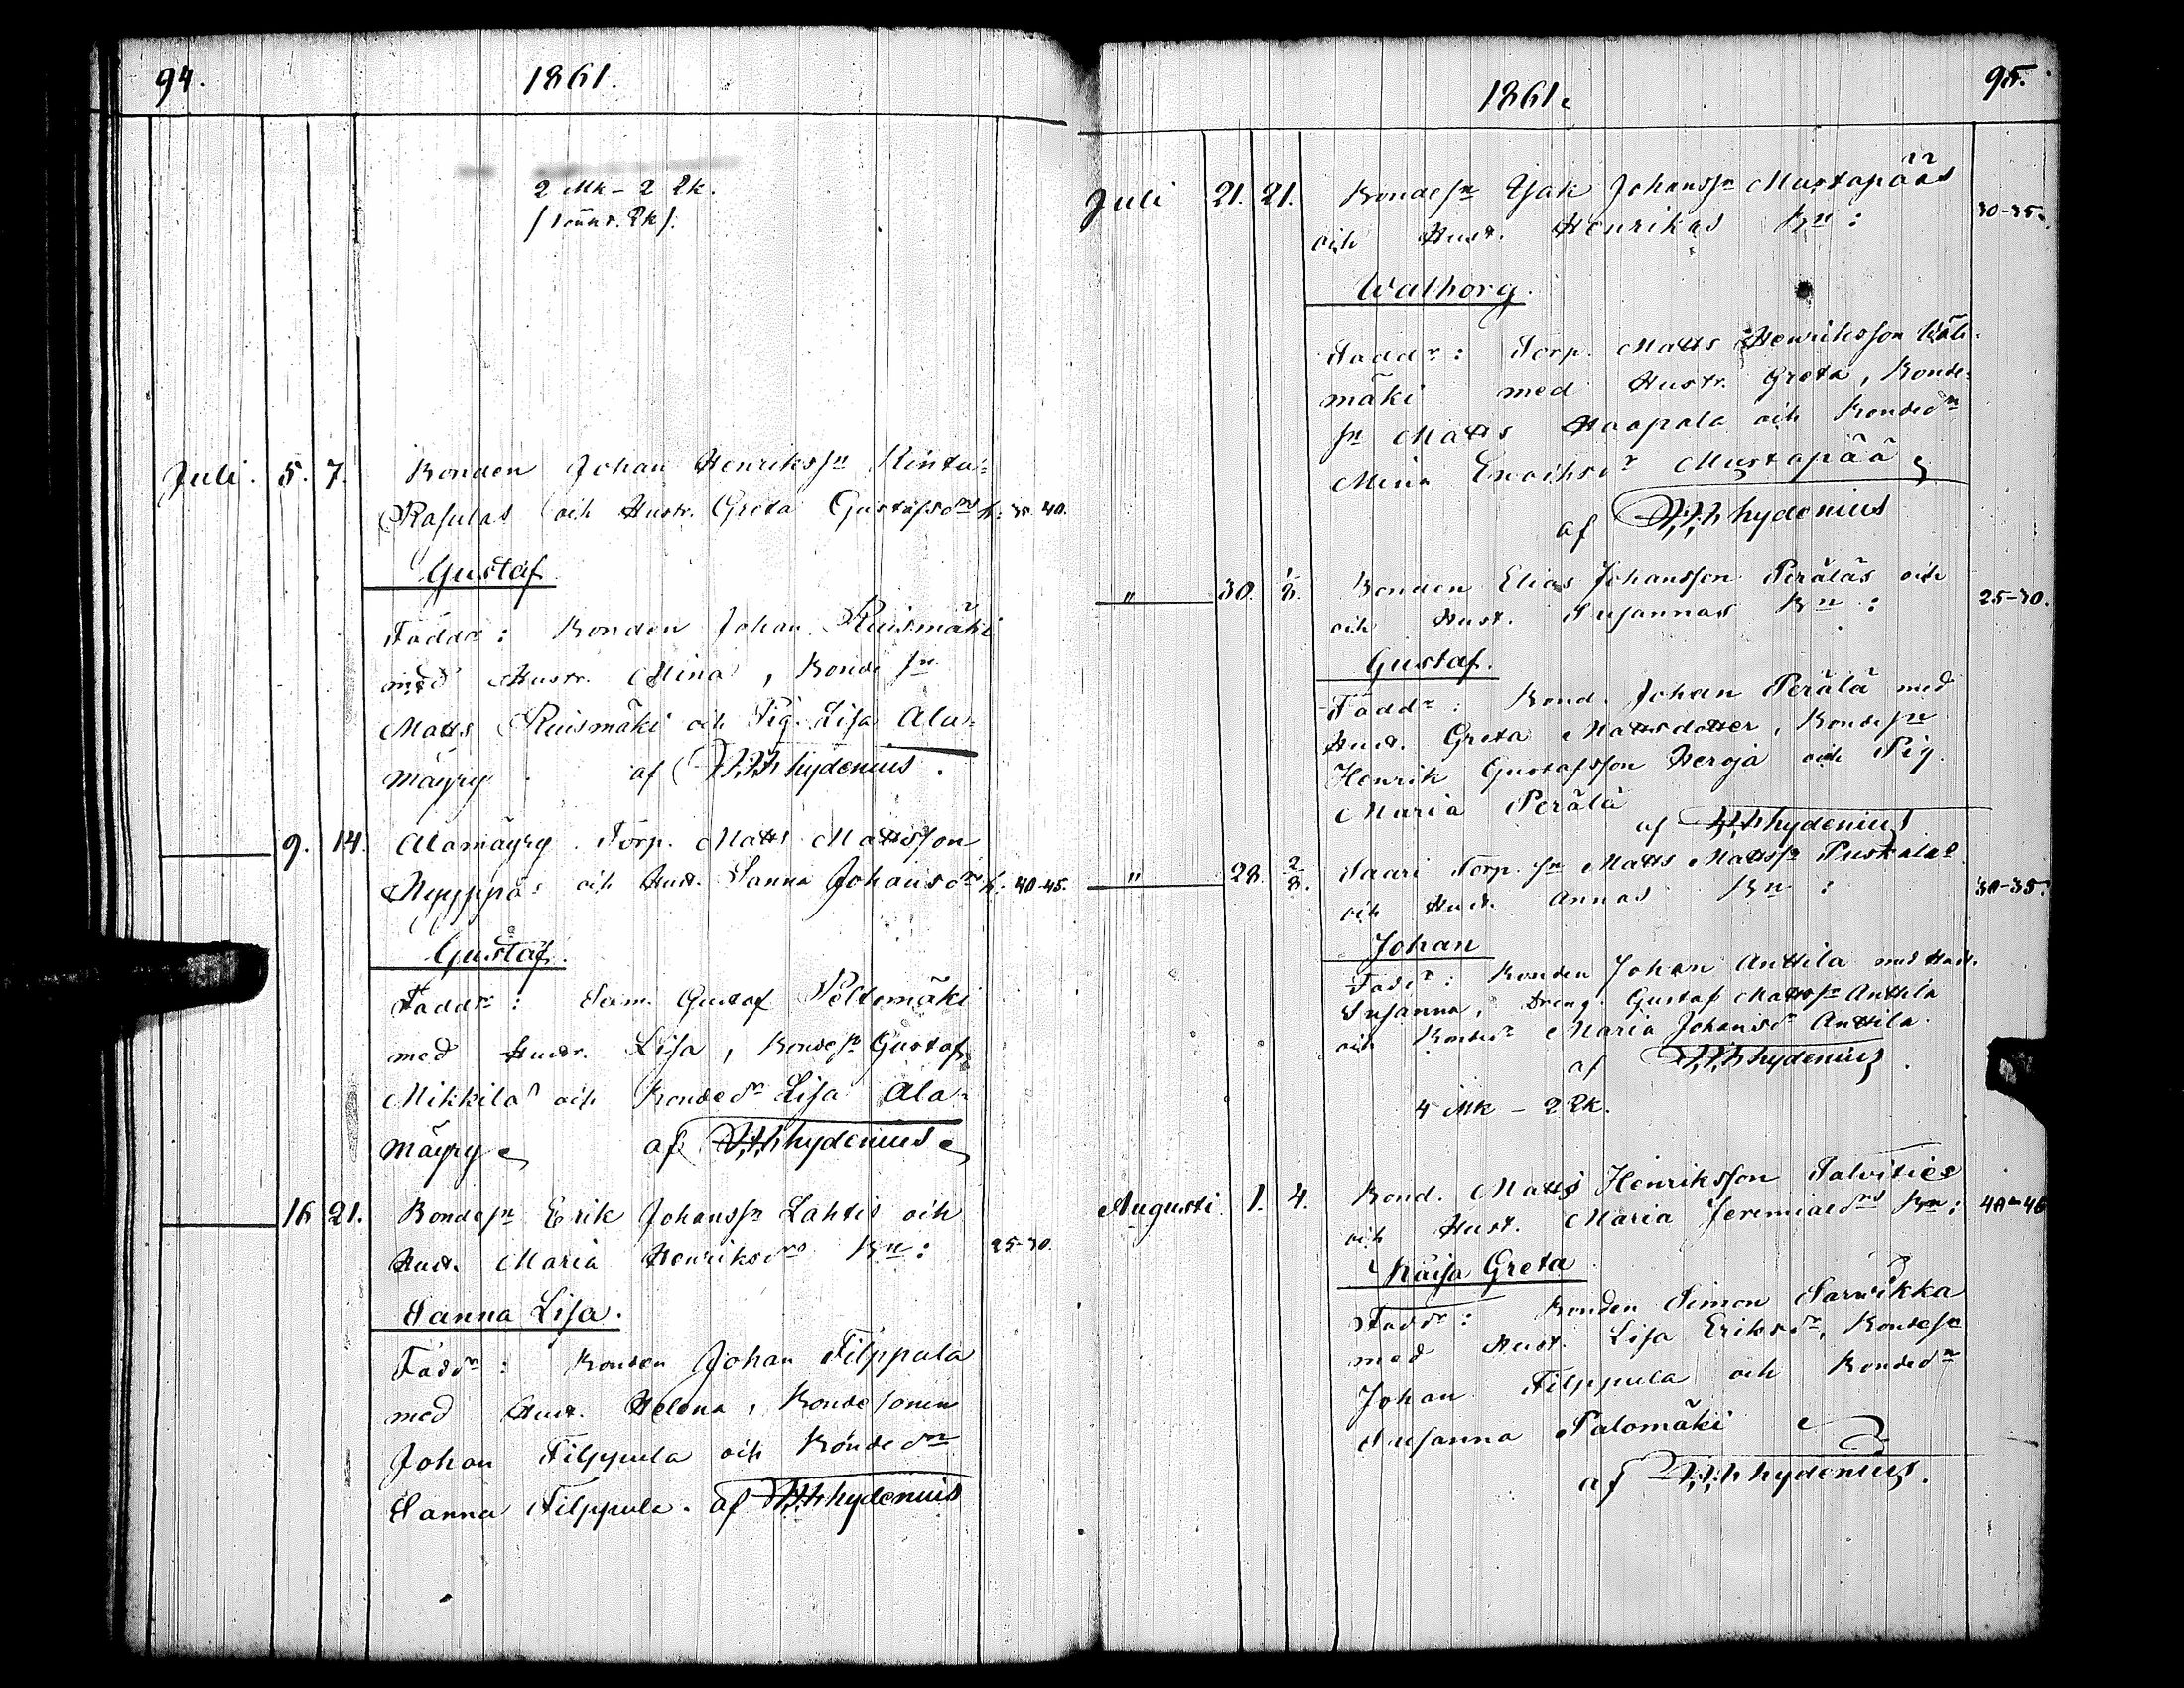 94. 1861.
2 Mk - 2 Qk.
Juli. 5. 7. Bonden Johan Henrikssn Rinta-
Rasulas och Hustr. Greta Gustafsdrs b: 35-40.
Gustaf
Faddr: Bonden Johan Ruismäki
med Hustr. Mina, Bondesn
Matts Ruismäki och Pig. Lisa Ala-
mäyry af hydenius.
9. 14. Alamäyry Torp. Matts Mattsson
och Hust. Sanna Johansdrs b: 40-45.
Gustaf.
Faddr: Gustaf Peltomäki
med Hustr. Lisa, Bondesn Gustaf
Mikkilä och Bondedr Lisa Ala-
mäyry af hydenius
16 21. Bondesn Erik Johanssn Lahtis och
Hust. Maria Henriksdrs Bn: 25-30.
Sanna Lisa.
Faddr: Bonden Johan Filppula
med Hust. Helena, Bondesonen
Johan Filppula och Bondedr
Sanna Filppula. af hydenius
1861. 95.
Juli 21. 21. Bondesn Isak Johanssn Mustapääs
och Hust. Henrikas Bn: 30-35.
Walborg.
Faddr: Torp. Matts Henriksson
mäki med Hustr. Greta, Bonde-
sn Matts Haapala och Bondedr
Mina Mustapää
af hydenius
" 30. 1/8. Bonden Elias Johansson Peräläs och
och Hust. Susannas Bn: 25-30.
Gustaf.
Faddr: Bond. Johan Perälä med
Hust. Greta Mattsdotter, Bondesn
Henrik Gustafsson Heroja och Pig.
Maria Perälä
af hydenius
" 28. 2/8. Saari Torp. sn Matts Mattssn Puskalas
och Hust. Annas Bn: 30-35.
Johan
Faddr: Bonden Johan Anttila med Hust.
Susanna, Dreng. Gustaf Mattssn Anttila
och Bondedr Maria Johansdr Anttila.
af hydenius.
4 Mk - 2 Qk.
Augusti 1. 4. Bond. Matts Henriksson Talvities
och Hust. Maria Jeremiaedrs Bn: 40-46
Kaisa Greta
Faddr: Bonden Simon Sarvikka
med Hust. Lisa Eriksdr, Bondesn
Johan Filppula och Bondedr
Susanna Palomäki
af hydenius.